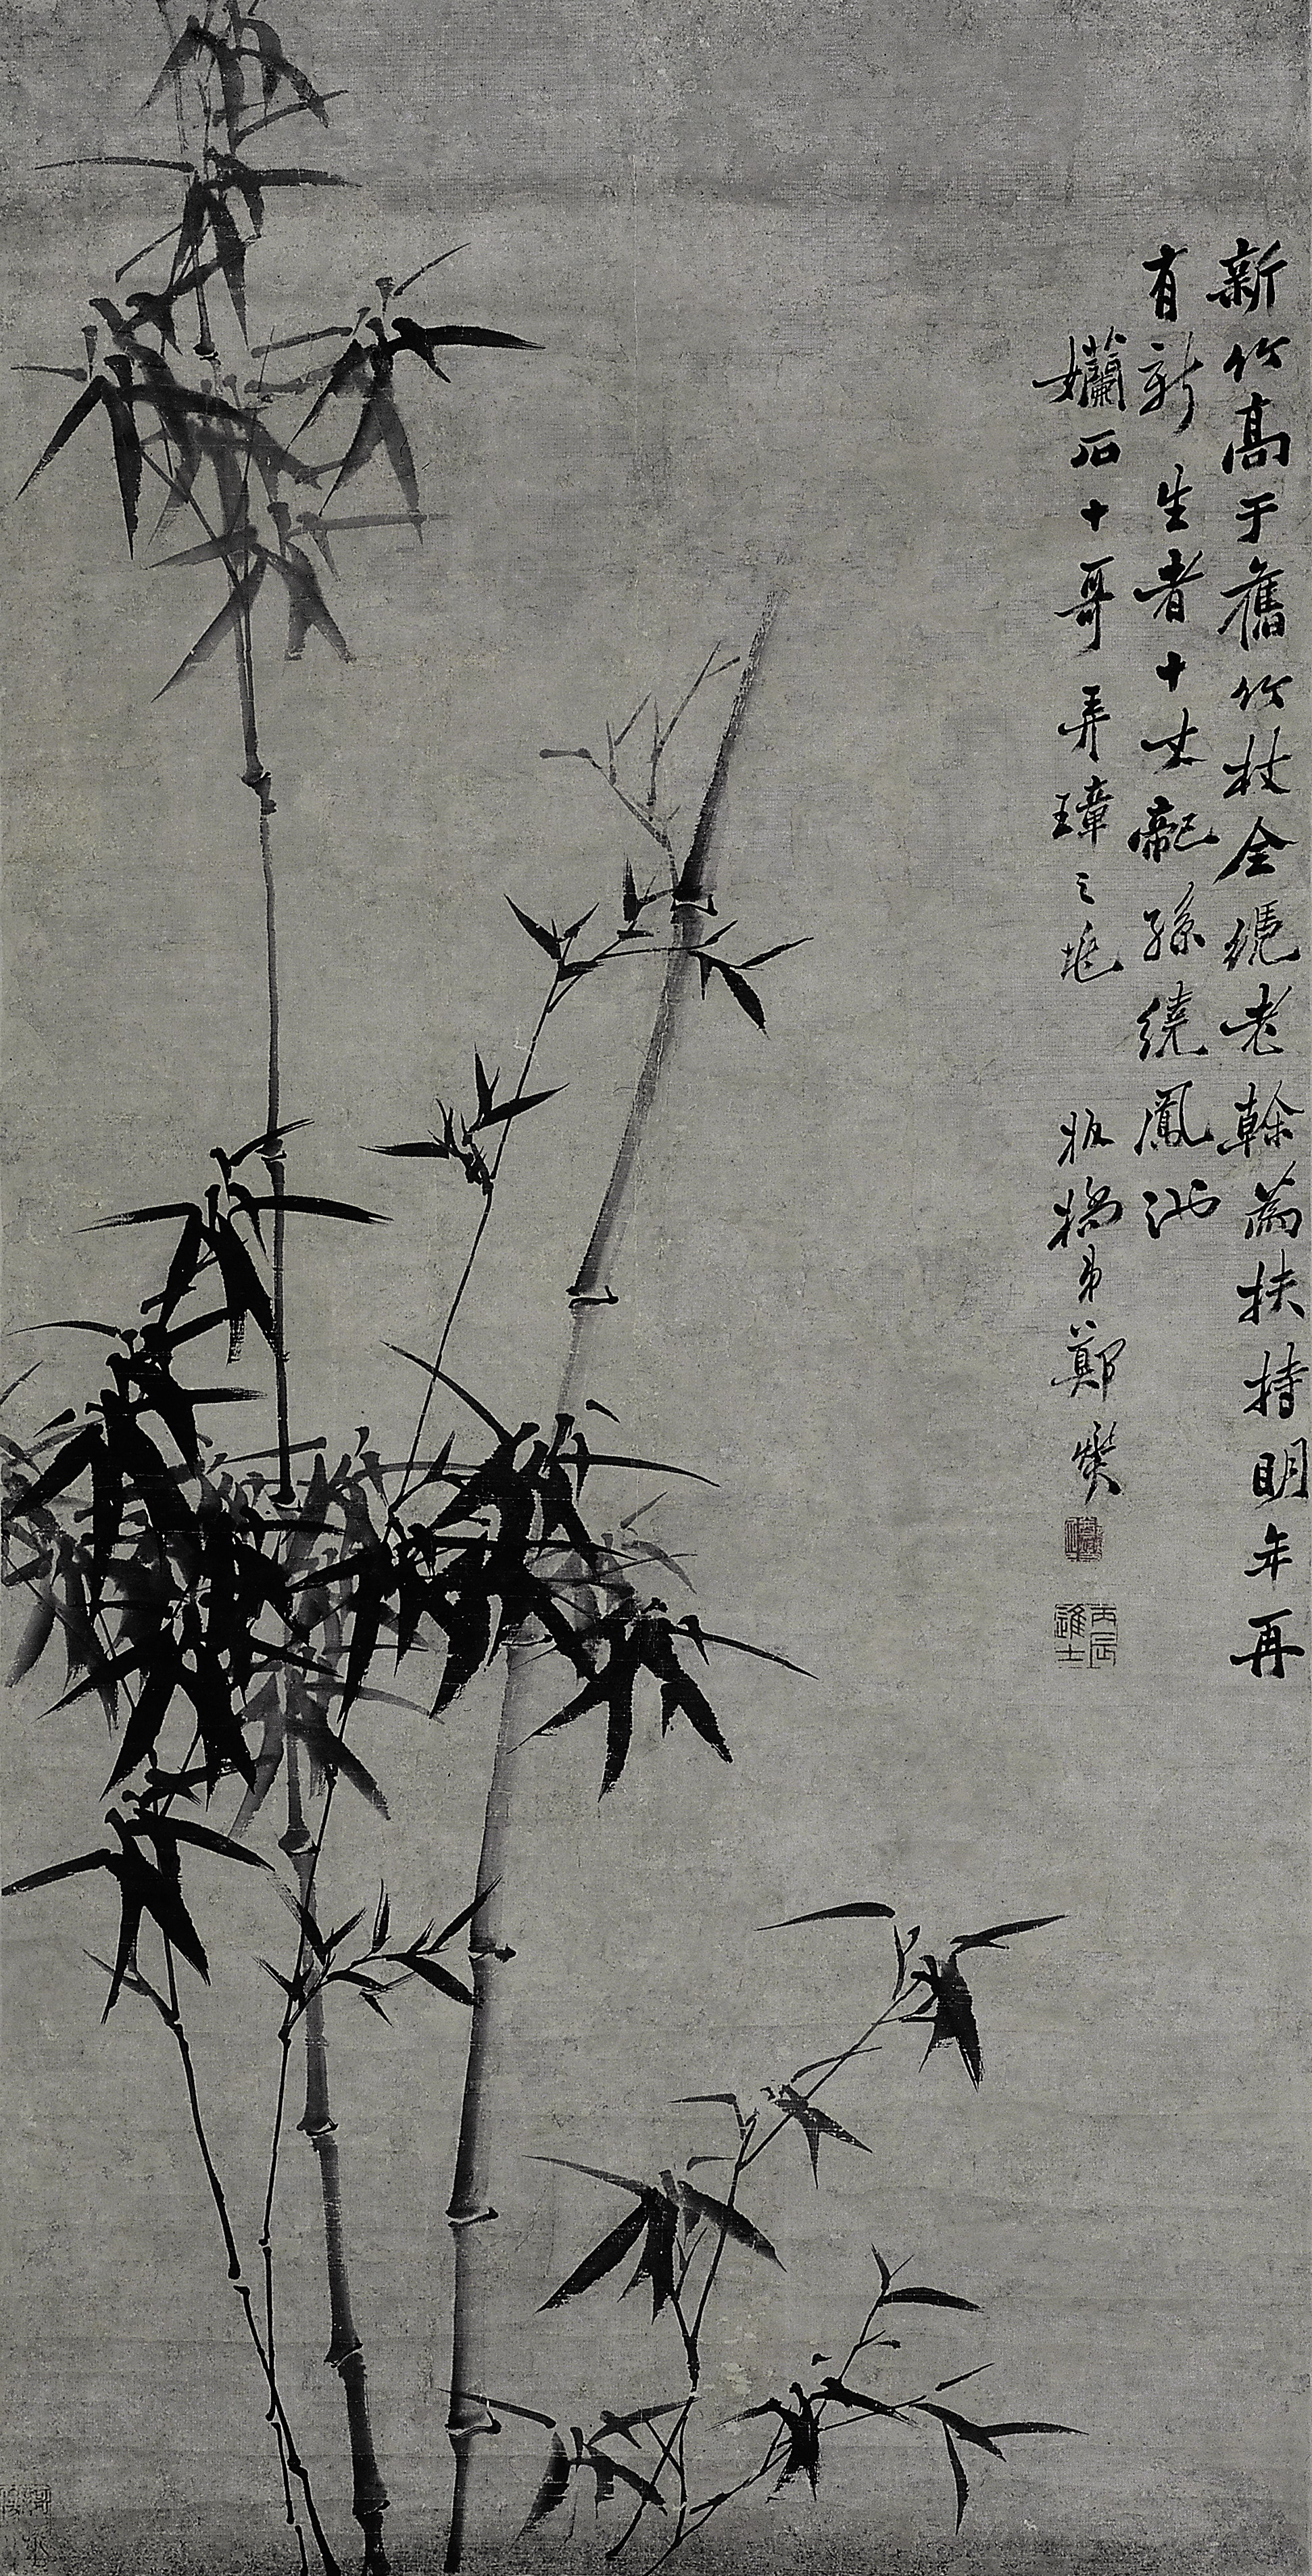 新竹高于舊竹枝全憑老榦為扶持明年再
有新生者十丈龍孫繞鳳池
孏石十哥弄璋之 板橋弟鄭燮
丙辰進士